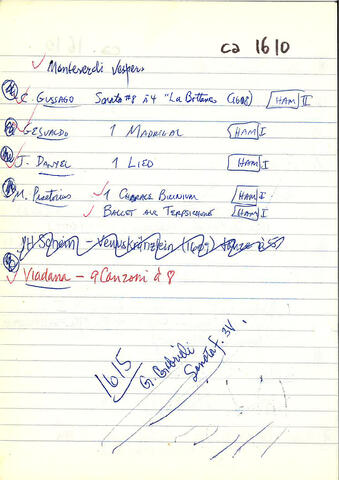 ca 1610
Monteverdi Vespers
C. GUSSAGO Sonata #8 à4 "La (1608) HAM II
GESUALDO 1 MADRIGAL HAM I
J. DANYEL 1 LIED HAM I
M. Praetorius 1 BICINIUM HAM I
BALLET aus TERPSICHORE HAM I
JH Schein - Venuskränzlein (1609)
Viadana - 9 Canzoni à 8
1615
G. Gabrieli
Sonata f. 3V.